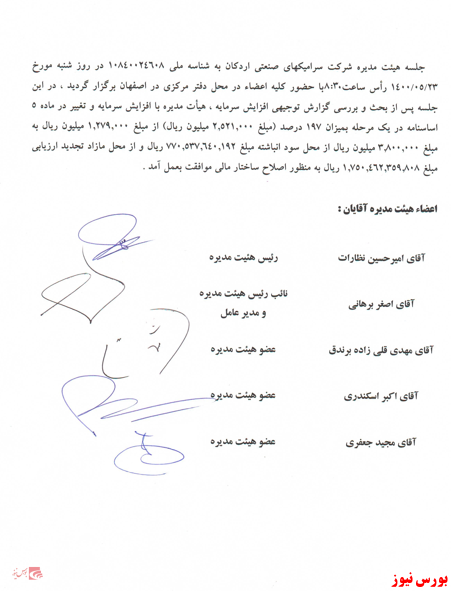 جلسه هیئت مدیره شرکت سرامیکهای صنعتی اردکان به شناسه ملی ۱۰۸۴۰۰۲۴۶۰۸ در روز شنبه مورخ
۱۴۰۰/۰۵/۲۳ رأس ساعت۸:۳۰با حضور کلیه اعضاء در محل دفتر مرکزی در اصفهان برگزار گردید ، در این
جلسه پس از بحث و بررسی گزارش توجیهی افزایش سرمایه ، هیأت مدیره با افزایش سرمایه و تغییر در ماده ۵
اساسنامه در یک مرحله بمیزان ۱۹۷ درصد (مبلغ ۲,۵۲۱,۰۰۰ میلیون ریال) از مبلغ ۱,۲۷۹,۰۰۰ میلیون ریال به
مبلغ ۳,۸۰۰,۰۰۰ میلیون ریال از محل سود انباشته مبلغ ۷۷۰,۵۳۷,۶۴۰,۱۹۲ ریال و از محل مازاد تجدید ارزیابی
مبلغ ۱,۷۵۰,۴۶۲,۳۵۹,۸۰۸ ریال به منظور اصلاح ساختار مالی موافقت بعمل آمد .
اعضاء هیئت مدیره آقایان :
آقای امیرحسین نظارات رئیس هئیت مدیره
آقای اصغر برهانی نائب رئیس هیئت مدیره
و مدیر عامل
آقای مهدی قلی زاده برندق عضو هیئت مدیره
آقای اکبر اسکندری عضو هیئت مدیره
آقای مجید جعفری عضو هیئت مدیره
بورس نیوز